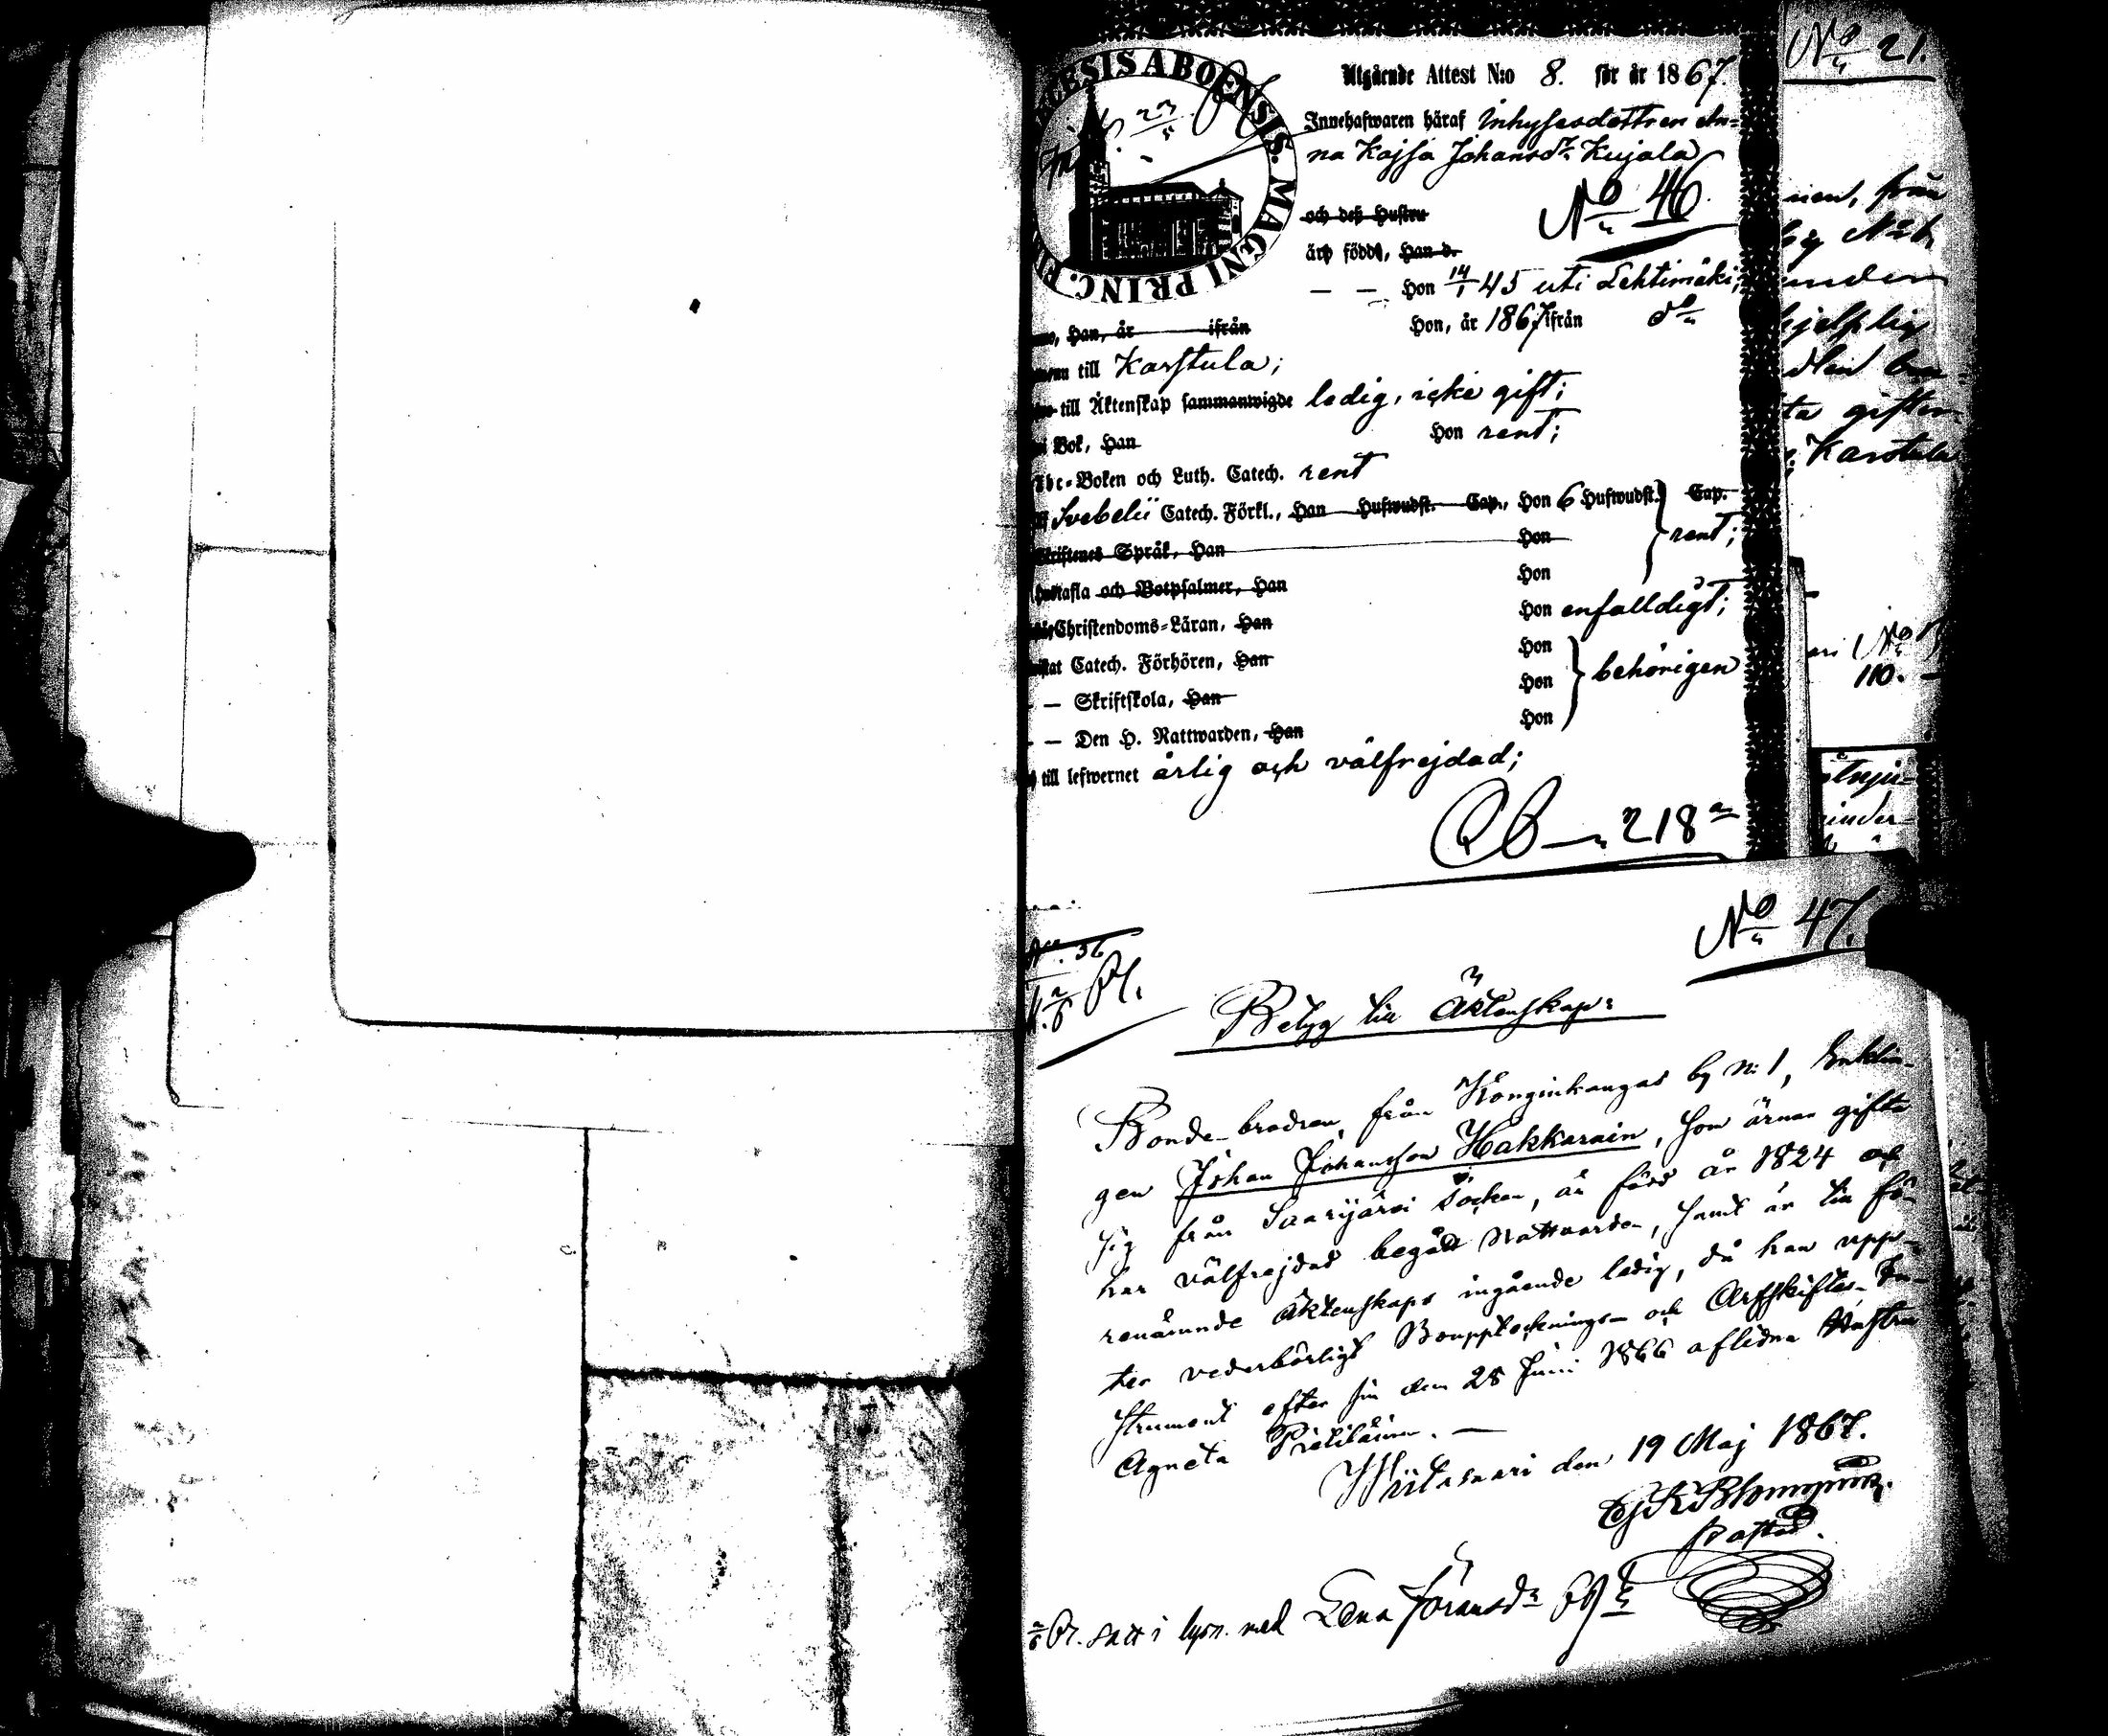 Utgående Attest N:o 8. för år 1867.
Innehafwaren häraf Inhysesdottren An-
na Kajsa Johansdr Kujala
No 46.
och deß Hustru
äro födde, Han d.
— — Hon 14/1 45 uti Lehtimäki;
Han, år ifrån Hon, år 1867 ifrån do
till Karstula;
till Äktenskap sammanwigde ledig, icke gift;
i Bok, Han Hon rent;
Abc-Boken och Luth. Catech. rent
Svebelii Catech. Förkl., Han Hufwudst. Cap., Hon 6 Hufwudst. Cap.
Skriftenes Språk, Han Hon rent;
Hustafla och Botpsalmer, Han Hon
Christendoms-Läran, Han Hon enfalldigt;
Catech. Förhören, Han Hon
— Skriftskola, Han Hon behörigen
— — Den H. Nattwarden, Han Hon
till lefwernet ärlig och välfrejdad;
218
DIOECESIS ABOENSIS. MAGNI PRINC. FI
No 21.
från
by No
under
hjelplig
gifter
Karstula
No
110.
No 47.
Betyg till Äktenskap:
Bonde-brodren från Könginkangas by N:1, Enklin-
gen Johan Johansson Hakkarain, som ärnar gifta
sig från Saarijärvi Socken, är född år 1824 och
har välfrejdad begått Nattvarden, samt är till fö-
renämnde Äktenskaps ingående ledig, då han uppvi-
ter vederbörligt Boupptecknings- och Arfskiftes-In-
strument efter sin den 28 Juni 1866 aflidna Hustru
Agneta
Wiitasaari den 19 Maj 1867.
Blomqvist
Pastor.
67. satt i lysn. med Lena Göransdr